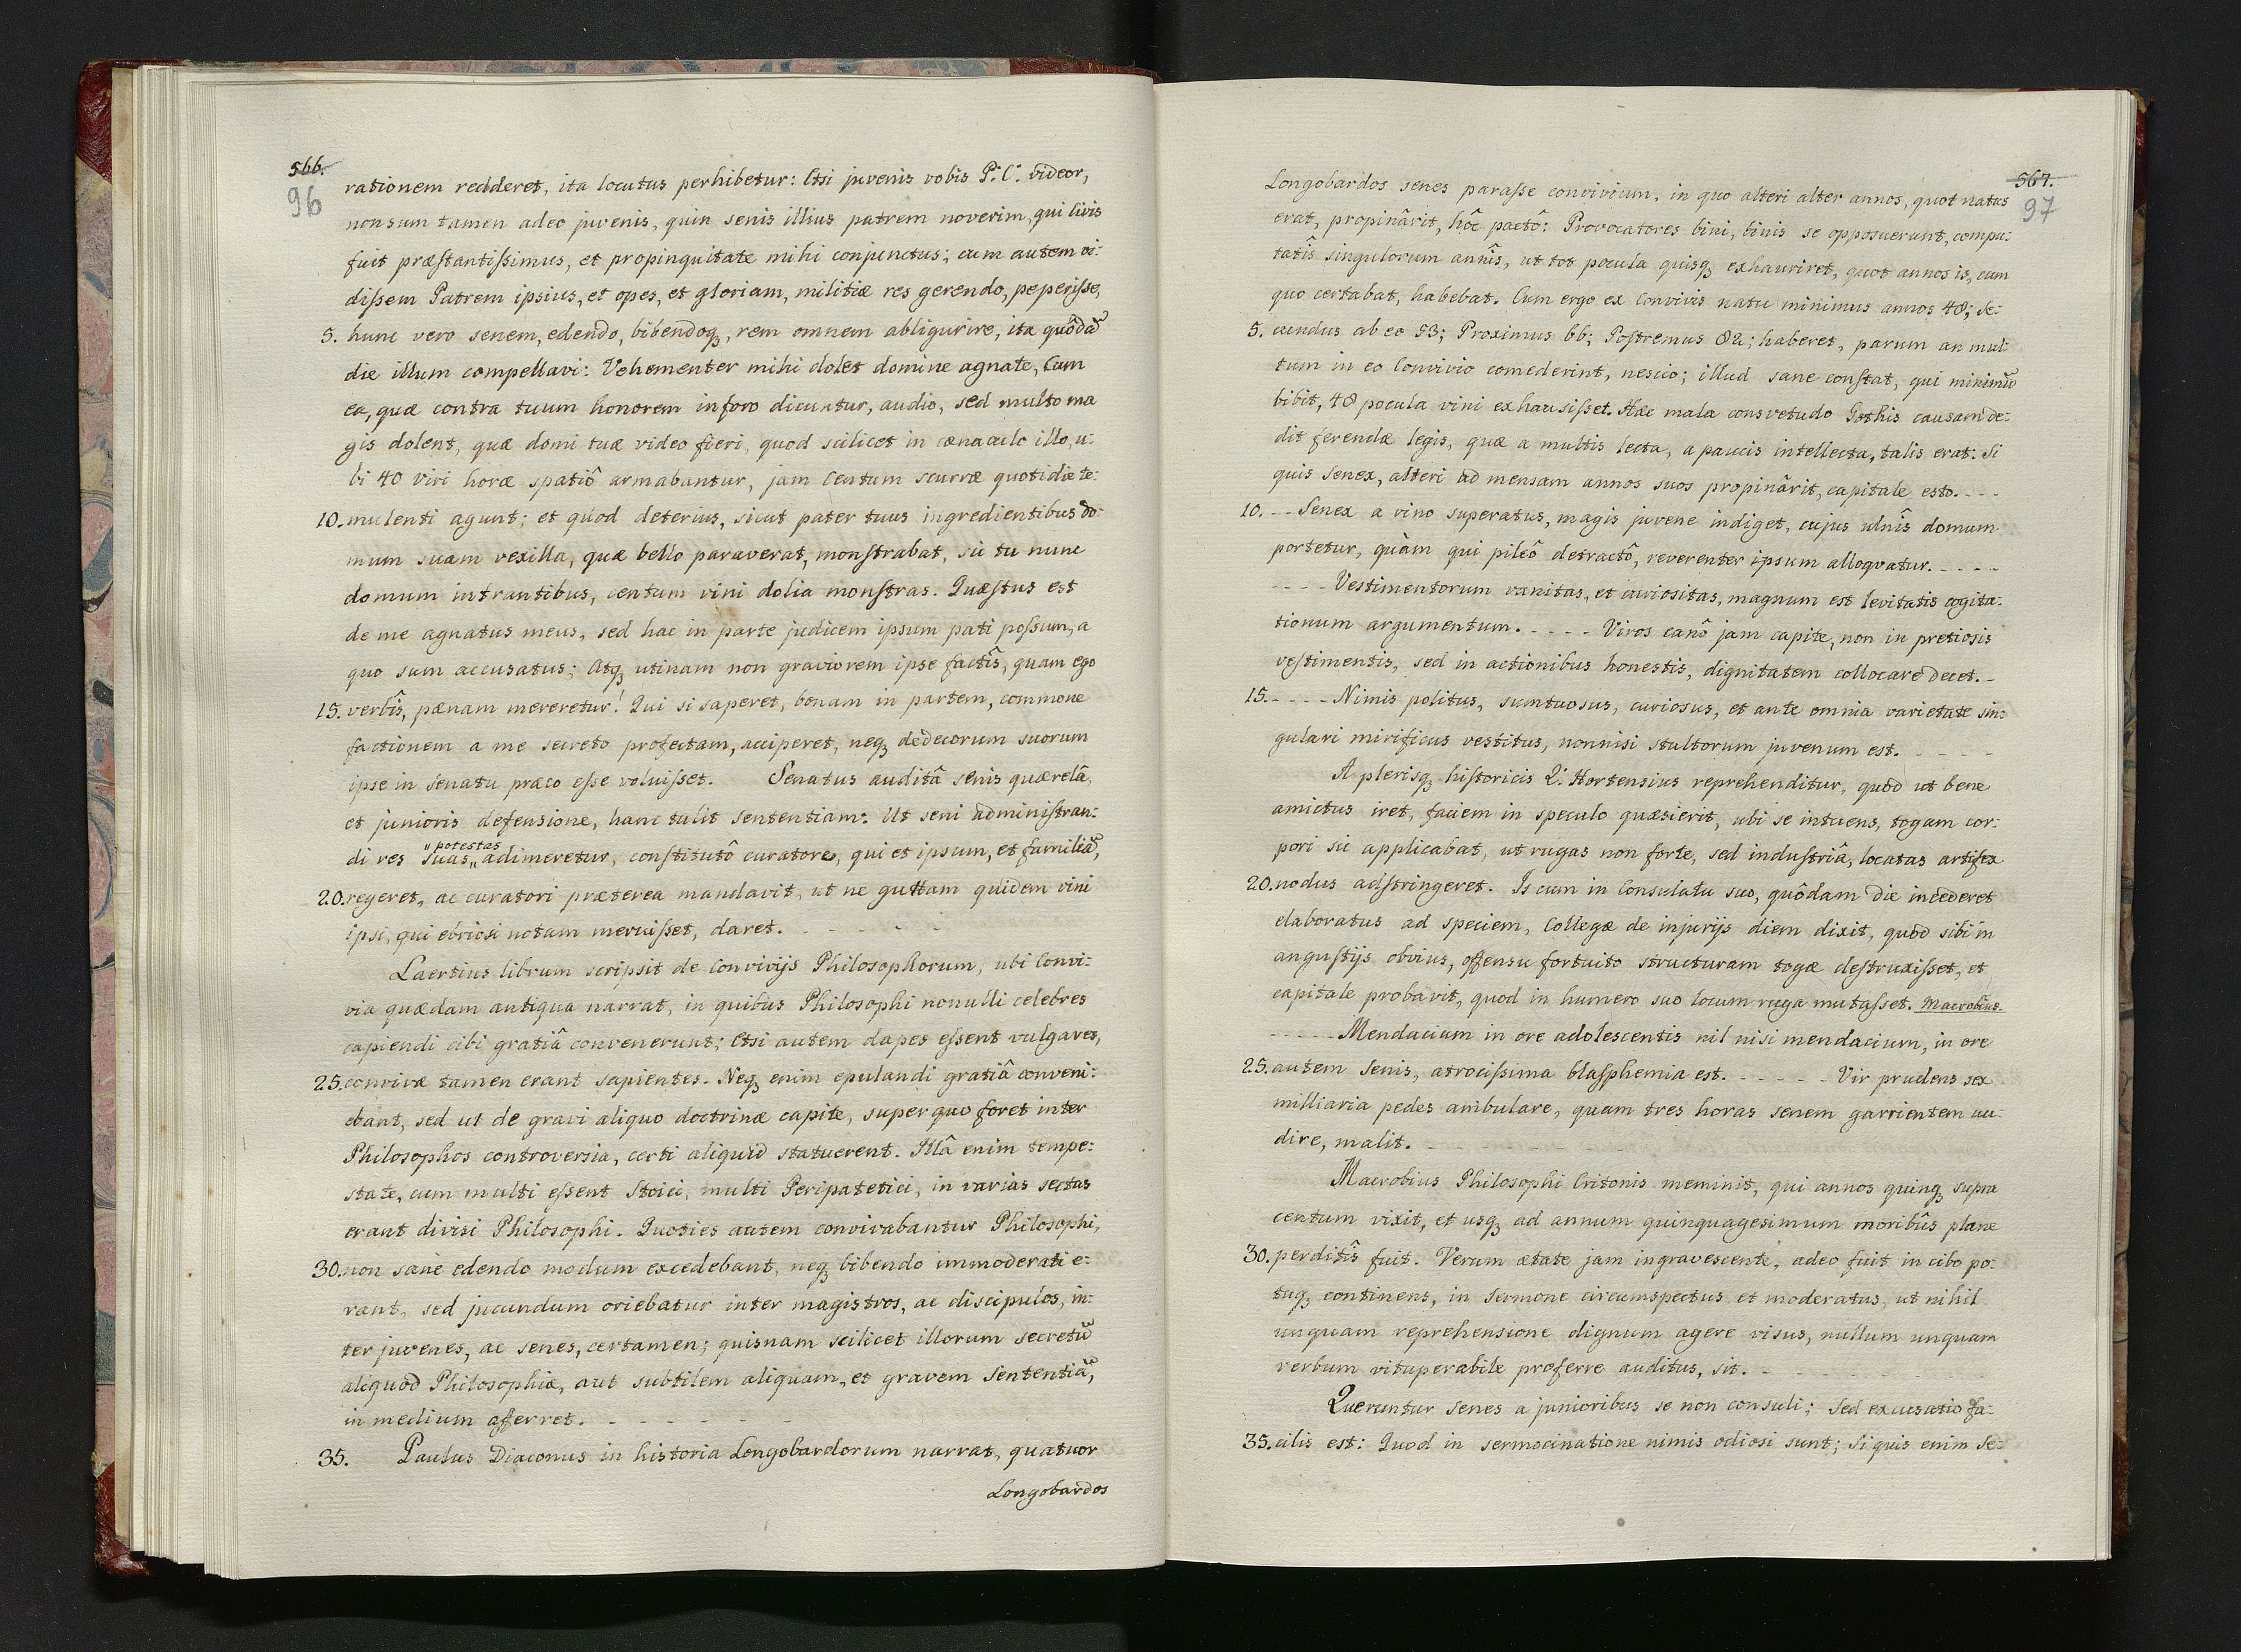 566.
96
rationem redderet, ita locutus perhibetur: Etsi juvenis vobis P. C. videor,
non sum tamen adeo juvenis, quin senis illius patrem noverim, qui Civis
fuit præstantissimus, et propinquitate mihi conjunctus; cum autem vi:
dissem Patrem ipsius, et opes, et gloriam, militiæ res gerendo, peperisse,
5. hunc vero senem, edendo, bibendoqꝫ, rem omnem abligurire, ita quôdã
die illum compellavi: Vehementer mihi dolet domine agnate, Cum
ea, quæ contra tuum honorem in foro dicuntur, audio, sed multo ma
gis dolent, quæ domi tuæ video fieri, quod scilicet in cænaculo illo, u:
bi 40 viri horæ spatiô armabantur, jam Centum scurræ quotidie te:
10. mulenti agunt; et quod deterius, sicut pater tuus ingredientibus do:
mum suam vexilla, quæ bello paraverat, monstrabat, sic tu nunc
domum intrantibus, centum vini dolia monstras. Quæstus est
de me agnatus meus, sed hac in parte judicem ipsum pati possum, a
quo sum accusatus; Atqꝫ utinam non graviorem ipse factîs, quam ego
15. verbîs, pænam mereretur! Qui si saperet, bonam in partem, commone
factionem a me secreto profectam, acciperet, neqꝫ dedecorum suorum
ipse in senatu præco esse voluisset. Senatus auditâ senis quærelâ,
et junioris defensione, hanc tulit sententiam: Ut seni administran:
di res suas „potestas„ adimeretur, constitutô curatore, qui et ipsum, et familiã,
20. regeret, ac curatori præterea mandavit, ut ne guttam quidem vini
ipsi, qui ebriosi notam meruisset, daret. - - - - -
Laertius librum scripsit de Convivijs Philosophorum, ubi Convi:
via quædam antiqua narrat, in quibus Philosophi nonulli celebres
capiendi cibi gratiâ convenerunt; Etsi autem dapes essent vulgares,
25. convivæ tamen erant sapientes. Neqꝫ enim epulandi gratiâ conveni:
ebant, sed ut de gravi aliquo doctrinæ capite, super quo foret inter
Philosophos controversia, certi aliquid statuerent. Illâ enim tempe:
state, cum multi essent Stoici, multi Peripatetici, in varias sectas
erant divisi Philosophi. Quoties autem convivabantur Philosophi,
30. non sane edendo modum excedebant, neqꝫ bibendo immoderati e:
rant, sed jucundum oriebatur inter magistros, ac discipulos, in:
ter juvenes, ac senes, certamen; quisnam scilicet illorum secretũ
aliquod Philosophiæ, aut subtilem aliquam, et gravem Sententiã,
in medium afferret. - - - - - -
35. Paulus Diaconus in historia Longobardorum narrat, quatuor
Longobardos
567.
97
Longobardos senes parasse convivium, in quo alteri alter annos, quot natus
erat, propinârit, hôc pactô: Provocatores bini, binis se opposuerunt, compu:
tatîs singulorum annîs, ut tot pocula quisqꝫ exhauriret, quot annos is, cum
quo certabat, habebat. Cum ergo ex Convivis natu minimus annos 48; Se:
5. cundus ab eo 53; Proximus 66; Postremus 82; haberet, parum an mul
tum in eo Convivio comederint, nescio; illud sane constat, qui minimũ
bibit, 48 pocula vini exhausisset. Hæc mala consvetudo Gothis causam de:
dit ferendæ legis, quæ a multis lecta, a paucis intellecta, talis erat: Si
quis Senex, alteri ad mensam annos suos propinârit, capitale esto. - - -
10. - - Senex a vino superatus, magis juvene indiget, cujus ulnîs domum
portetur, quàm qui pileô detractô, reverenter ipsum alloqvatur. - - - - -
- - - - Vestimentorum vanitas, et curiositas, magnum est levitatis cogita:
tionum argumentum. - - - - Viros canô jam capite, non in pretiosis
vestimentis, sed in actionibus honestis, dignitatem collocare decet. -
15. - - - - Nimis politus, sumtuosus, curiosus, et ante omnia varietate sin:
gulari mirificus vestitus, nonnisi stultorum juvenum est. - - - -
A plerisqꝫ historicis Q. Hortensius reprehenditur, quod ut bene
amictus iret, faciem in speculo quæsierit, ubi se intuens, togam cor:
pori sic applicabat, ut rugas non forte, sed industriâ, locatas artifex
20. nodus adstringeret. Is cum in Consulatu suo, quôdam die incederet
elaboratus ad speciem, Collegæ de injurijs diem dixit, quod sibi in
angustijs obvius, offensu fortuito structuram togæ destruxisset, et
capitale probavit, quod in humero suo locum ruga mutasset. Macrobius.
- - - - - Mendacium in ore adolescentis nil nisi mendacium, in ore
25. autem Senis, atrocissima blasphemia est. - - - - - Vir prudens sex
milliaria pedes ambulare, quam tres horas senem garrientem au:
dire, malit. - - - - - - -
Macrobius Philosophi Critonis meminit, qui annos quinqꝫ supra
centum vixit, et usqꝫ ad annum quinquagesimum moribûs plane
30. perditîs fuit. Verum ætate jam ingravescente, adeo fuit in cibo po:
tuqꝫ continens, in sermone circumspectus et moderatus, ut nihil
unquam reprehensione dignum agere visus, nullum unquam
verbum vituperabile proferre auditus, sit. - - - - - - -
Queruntur Senes a junioribus se non consuli; Sed excusatio fa:
35. cilis est: Quod in sermocinatione nimis odiosi sunt; Si quis enim Se: